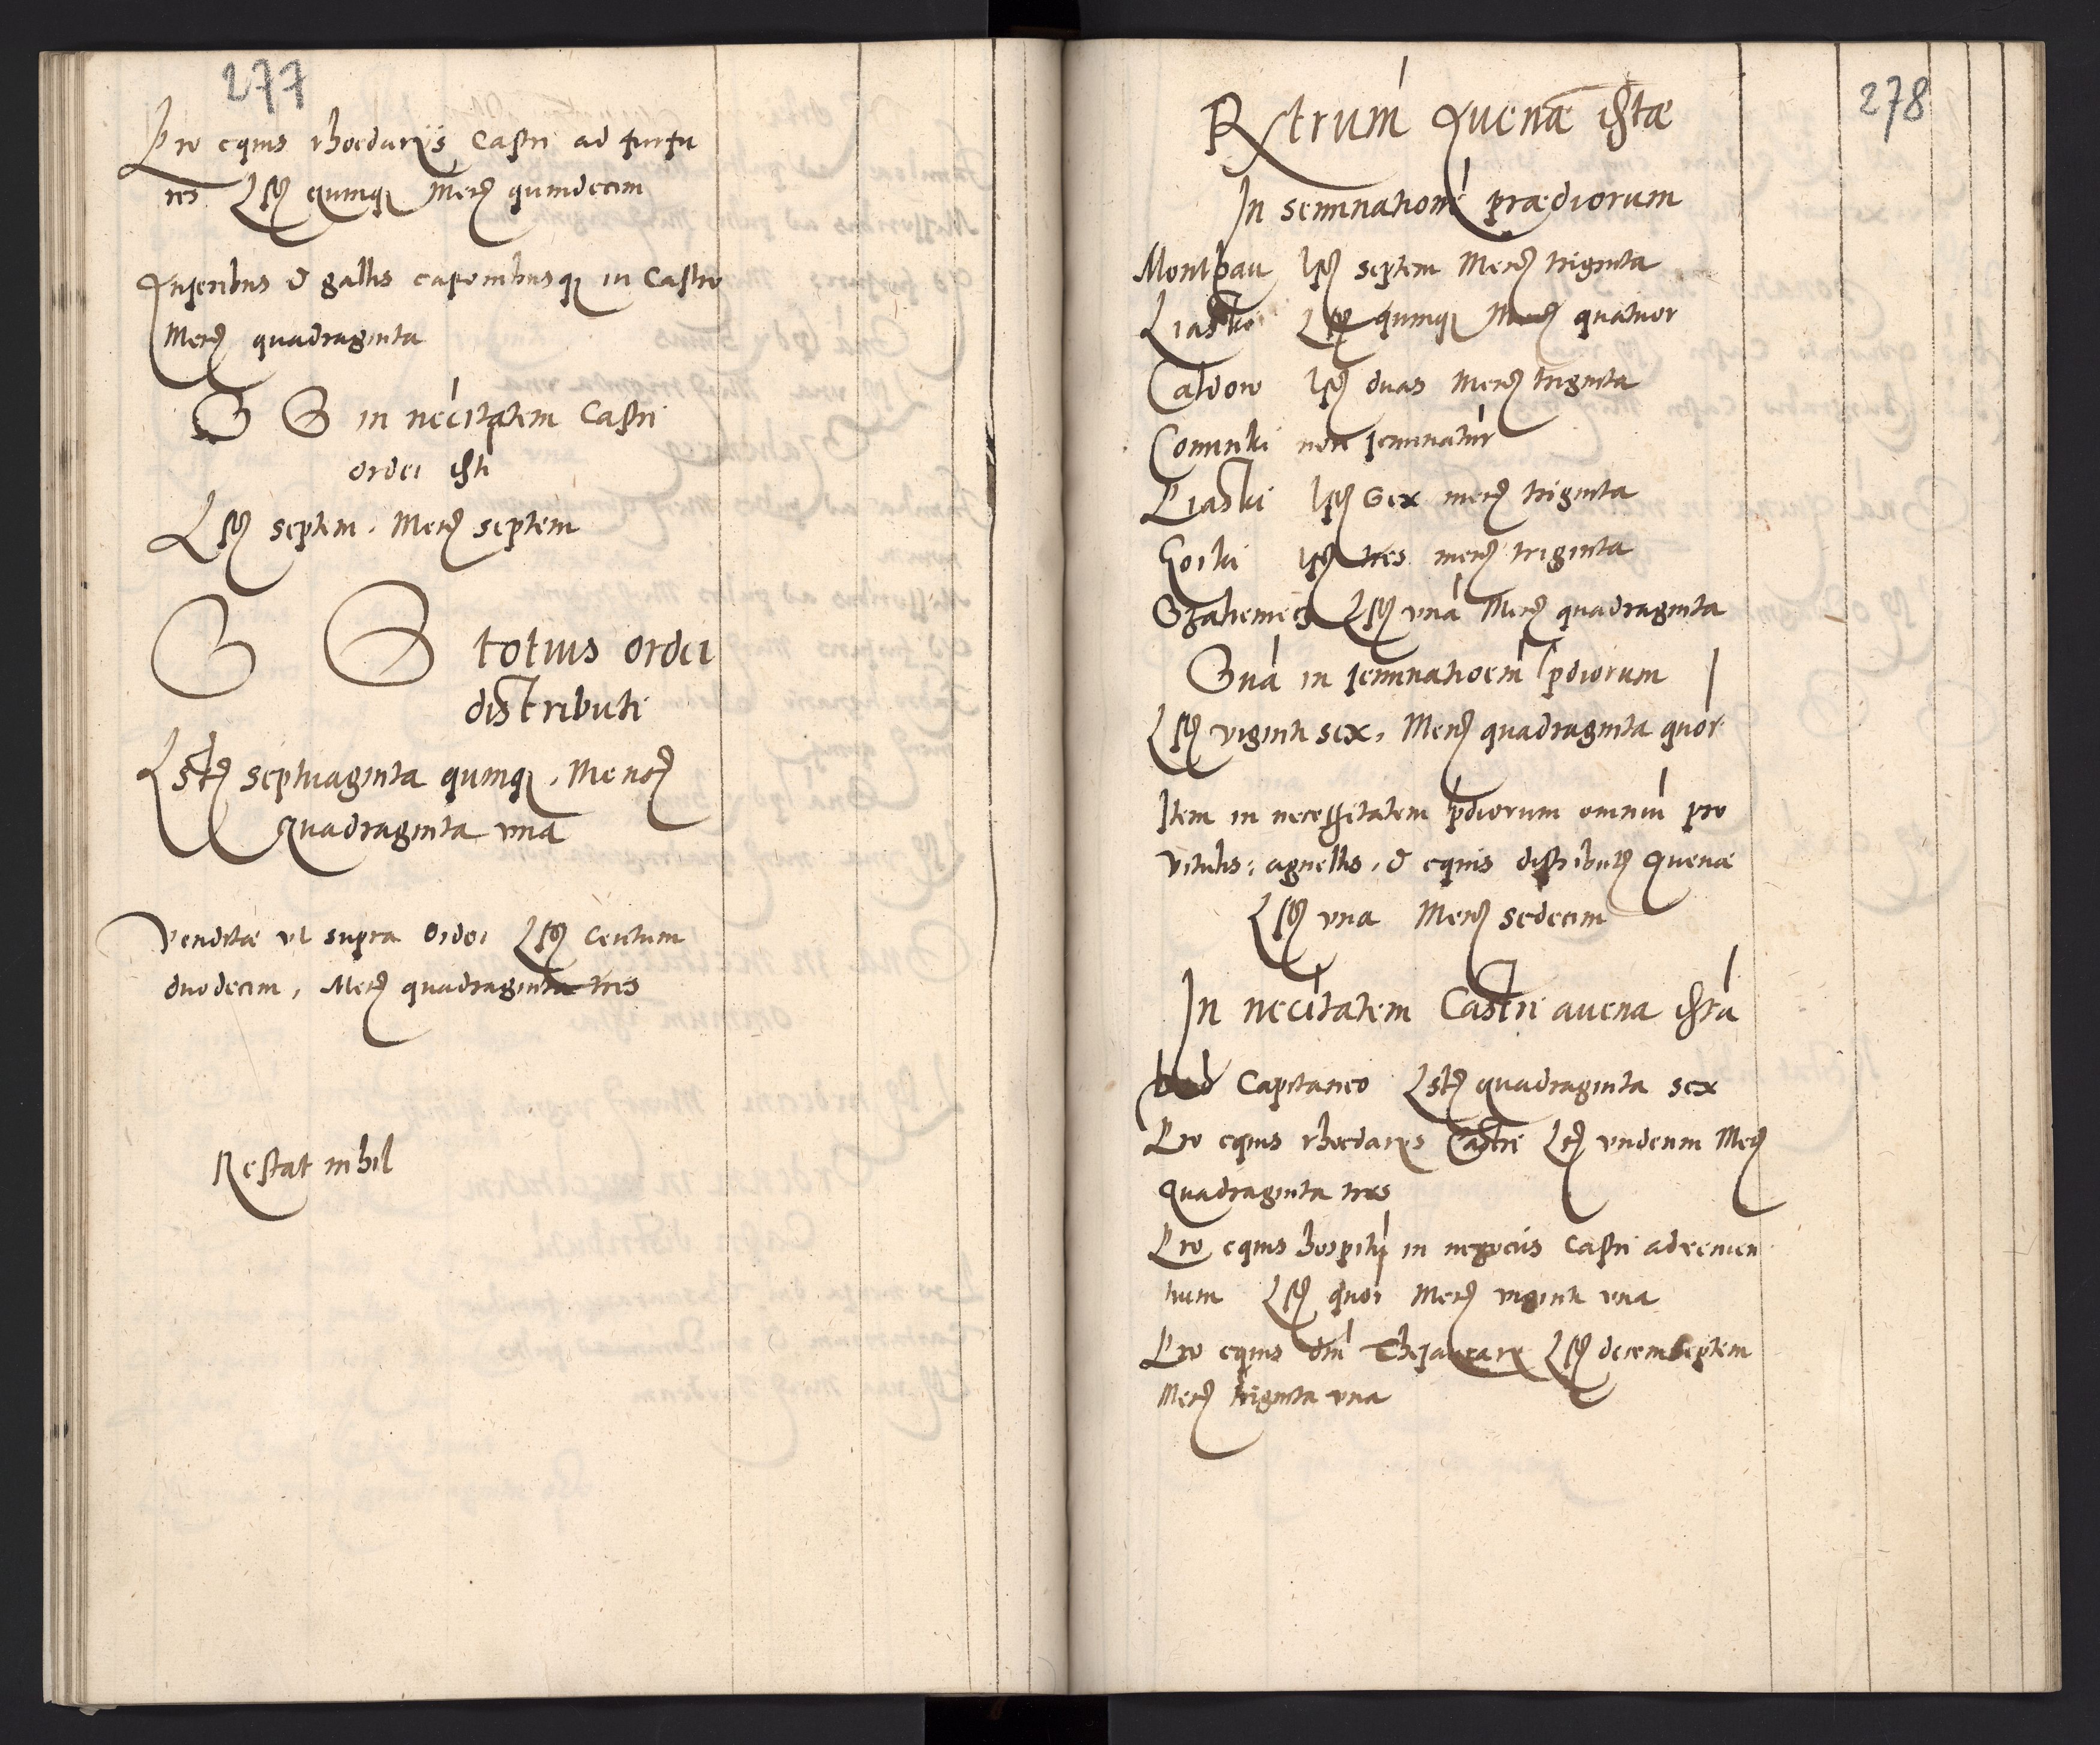 277
Pro equis rhoedariis Castri ad furfu
res Lst quinq Mens quindecim
Anseribus & gallis caponibusq in Castro
Mens quadraginta
S S in necitatem Castri
ordei isti
Lst septem. Mens septem
S S totius ordei
distributi
Lst septuaginta quinq, Mens
quadraginta una
Venditae ut supra Ordei Lst Centum
duodecim, Mens quadraginta tres
Restat nihil
278
Rxtrum Avenae istae
In seminationem praediorum
Monthau lst septem Mens triginta
Liaski Lst quinq Mens quatuor
Caldow lst duas Mens triginta
non seminatur
Piaski lst Sex mens triginta
Gorki lst tres mens triginta
Lst una Mens quadraginta
Sua in seminatioem pdiorum
Lst viginti sex, Mens quadraginta quor
Item in necessitatem pdiorum omniu pro
vitulis, agnellis, & equis distributae Avenae
Lst una Mens sedecim
In necitatem Castri avena ista
Capitaneo Lst quadraginta sex
Pro equis rhoedariis Castri Lst undecim Mens
quadraginta tres
Pro equis hospitu in negociis Castri advenien
tium Lst quor Mens viginti una
Pro equis dni Thesaurarii Lst decemseptem
Mens triginta una